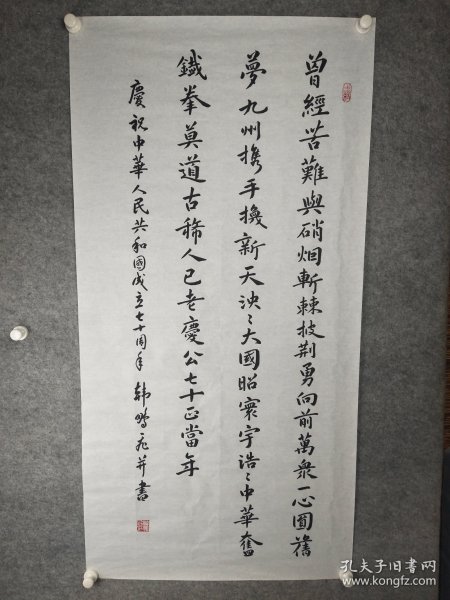 曾經苦難與硝烟斬棘披荆勇向前萬衆一心圓舊
夢九州携手換新天泱〻大國昭寰宇浩〻中華奮
鐵拳莫道古稀人已老慶公七十正當年
慶祝中華人民共和國成立七十周年 韩并書
孔夫子旧书网
www.kongfz.com